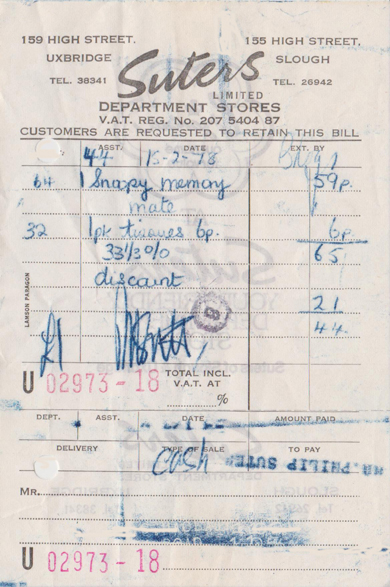 159 HIGH STREET, 155 HIGH STREET,
UXBRIDGE Suters SLOUGH
TEL. 38341 LIMITED TEL. 26942
DEPARTMENT STORES
V.A.T. REG. No. 207 5404 87
CUSTOMERS ARE REQUESTED TO RETAIN THIS BILL
ASST. DATE EXT. BY
44 15-2-78
64 1 Snoopy memory 59p.
mate
32 1pk tissues 6p. 6p.
33⅓% 65
discount
21
44.
LAMSON PARAGON
£1
U 02973-18 TOTAL INCL.
V.A.T. AT
%
DEPT. ASST. DATE AMOUNT PAID
DELIVERY TYPE OF SALE TO PAY
CASH MR. PHILIP SUTER
Mr.
U 02973-18